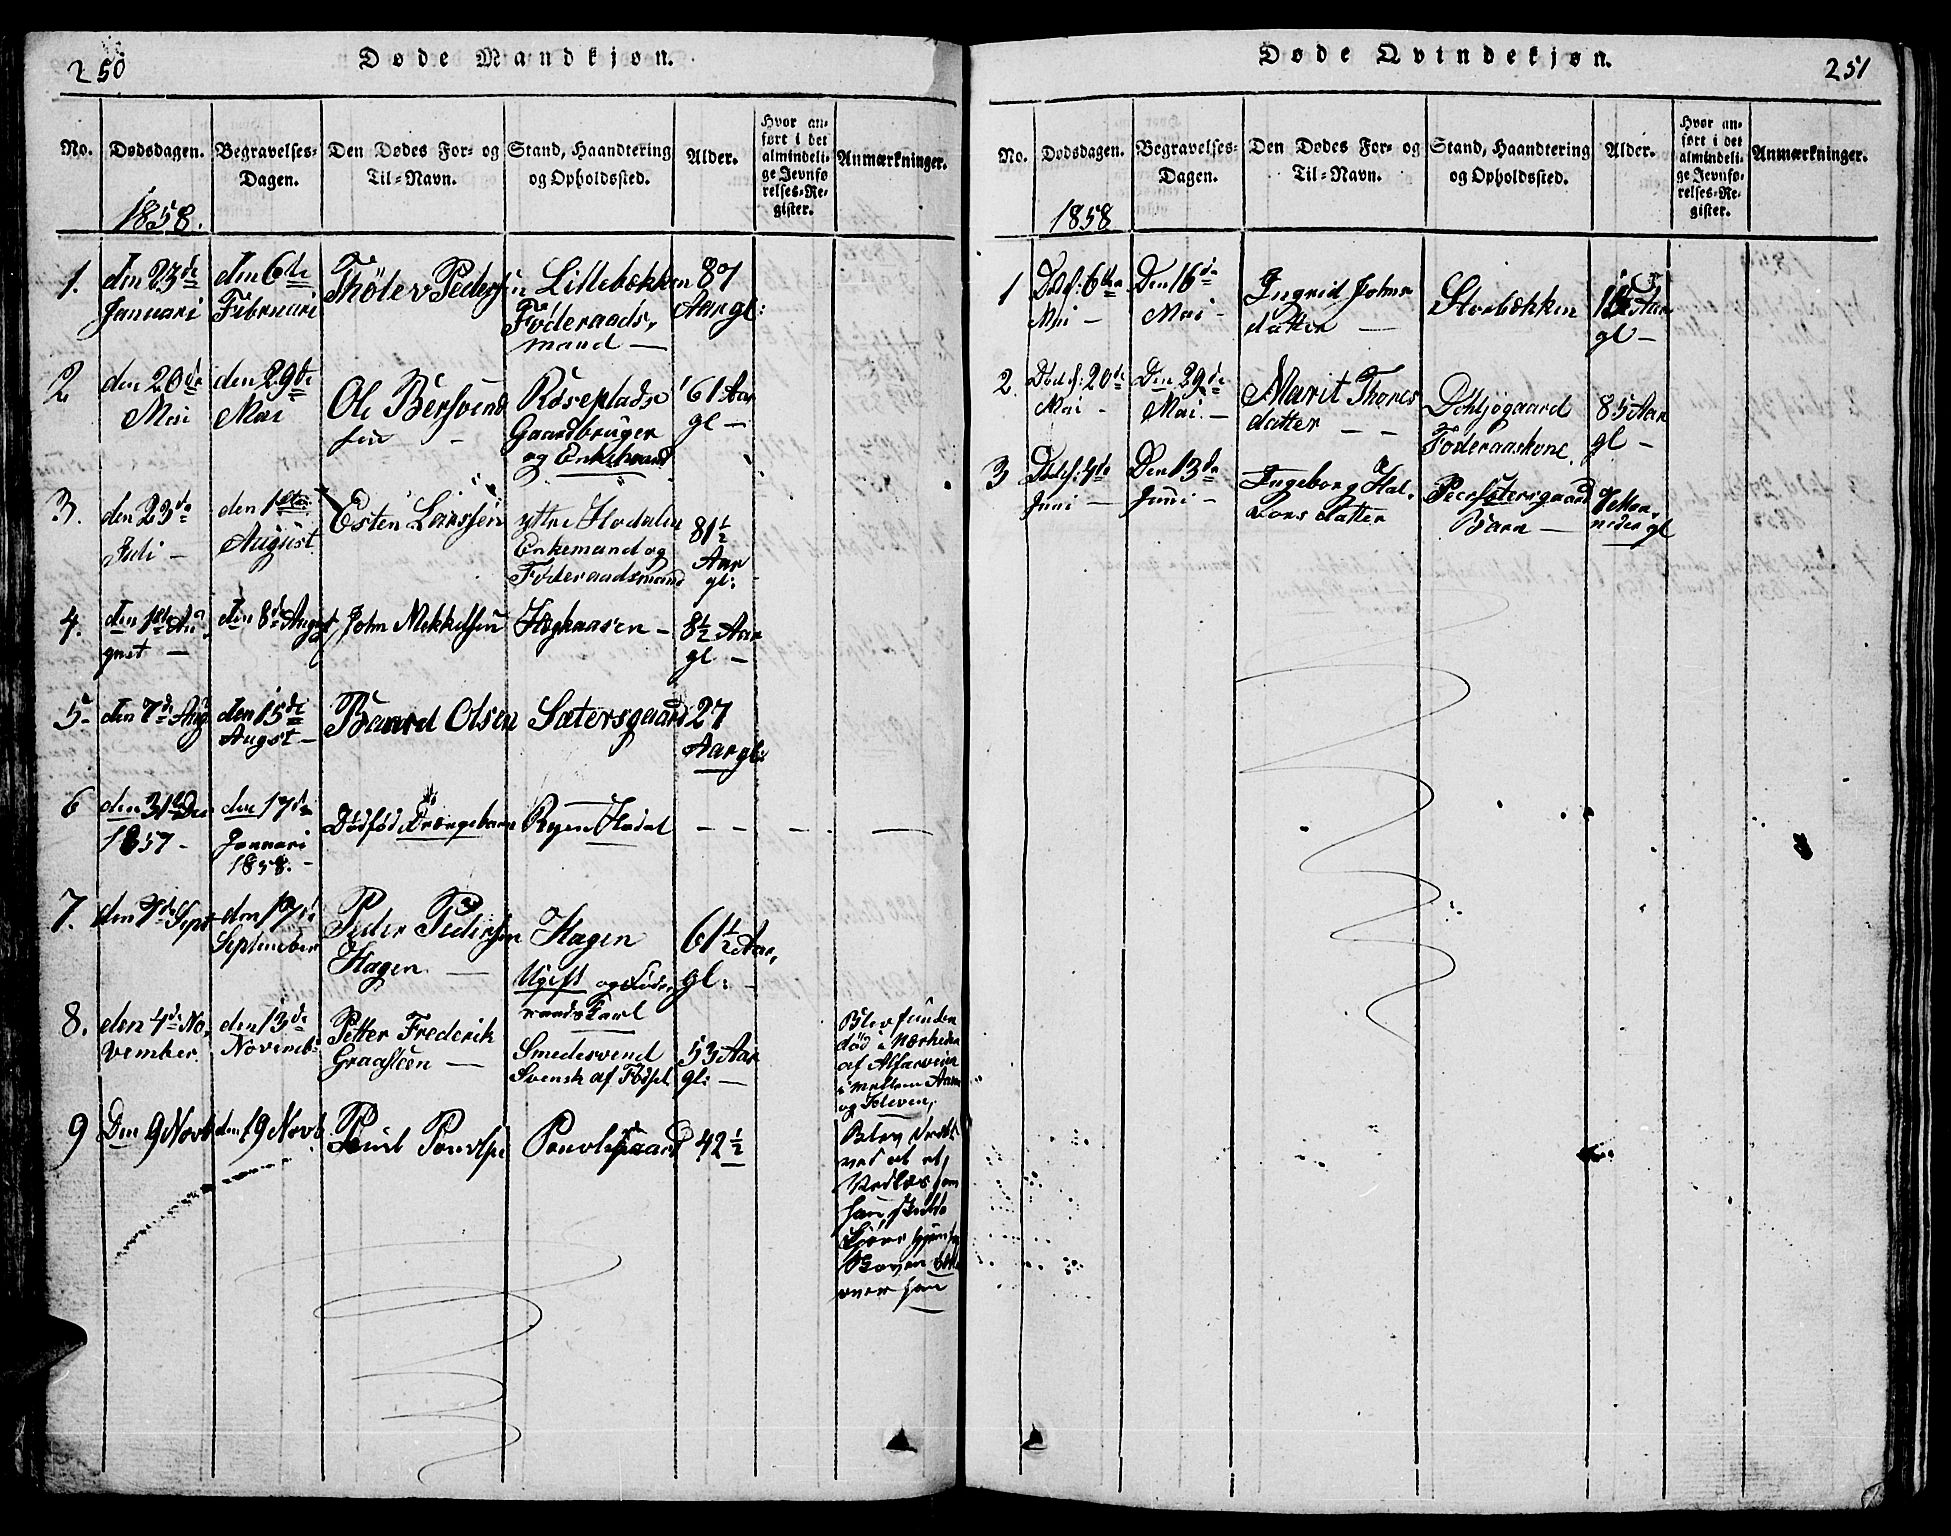 250
Døde Mandkjøn.
No.
Dødsdagen.
Begravelses-
Dagen.
Den Dødes For- og
Til-Navn.
Stand, Haandtering
og Opholdssted.
Alder.
Hvor an-
ført i det
almindeli-
ge Jevnfø-
relses-Re-
gister.
Anmærkninger.
1858.
1. den 23de
Januari
den 6te
Februari
Thøler Peders
Lillebækken
Føderaads,
mand —
87
Aar gl:
2
den 20de
Mai
den 29de
Mai
Ole Bersvend
sen -
Røseplads
Gaardbruger
og Enkemand
61 Aar
gl —
3.
den 23de
Juli —
den 1ste
August
Esten Larssen
ytre Hodalen
Enkemand og
Føderaadsmand
81½
Aar
gl:
4.
den 1ste Au
gust —
den 8de August
John Mikkelsen
Haghaasen -
8½ Aar
gl —
5-
den 7de Aug
den 15de
Augst —
Baard Olsen
Sætersgaard
27
Aar gl:
6
den 31te Dec
1857 -
den 17de
Januari
1858. -
Dødfød Drængebarn
Ryen Hodal
7.
den 7de Sept
den 17de
September
Peder Pedersen
Hagen —
Hagen
Ugift og Føde,
raads Karl
61½ Aar,
gl:
8.
den 4de No,
vember.
den 13de
Novemb:
Petter Frederik
Graasteen —
Smedesvend
Svensk af Fødsel
53 Aar
gl: —
Blev funden
død i Nærheden
af Alfarveien
imellem Aasen
og Kleven,
9
Den 9 Novb
den 19 Novb
Poul Poulse
Poulsgaard
42½
Blev
ved at et
Vedlæs som
han skulde
kjøre hjem fra
over han

251
Døde Qvindekjøn.
No.
Dødsdagen.
Begravelses-
Dagen.
Den Dødes For- og
Til-Navn.
Stand, Haandtering
og Opholdssted.
Alder.
Hvor an-
ført i det
almindeli-
ge Jevnfø-
relses-Re-
gister.
Anmærkninger.
1858
1
Død f: 6te
Mai —
Den 16de
Mai -
Ingrid Johns
datter —
Storbækken
Aar
gl —
2
Død f: 20de
Mai -
Den 29de
Mai. —
Marit Thores
datter — -
Føderaaskone.
85 Aar
gl —
3
Død f: 4de
Juni —
Den 13de
Juni -
Ingeborg Hal,
vors datter
Peersætersgaard
Barn —
Maa,
neder gl